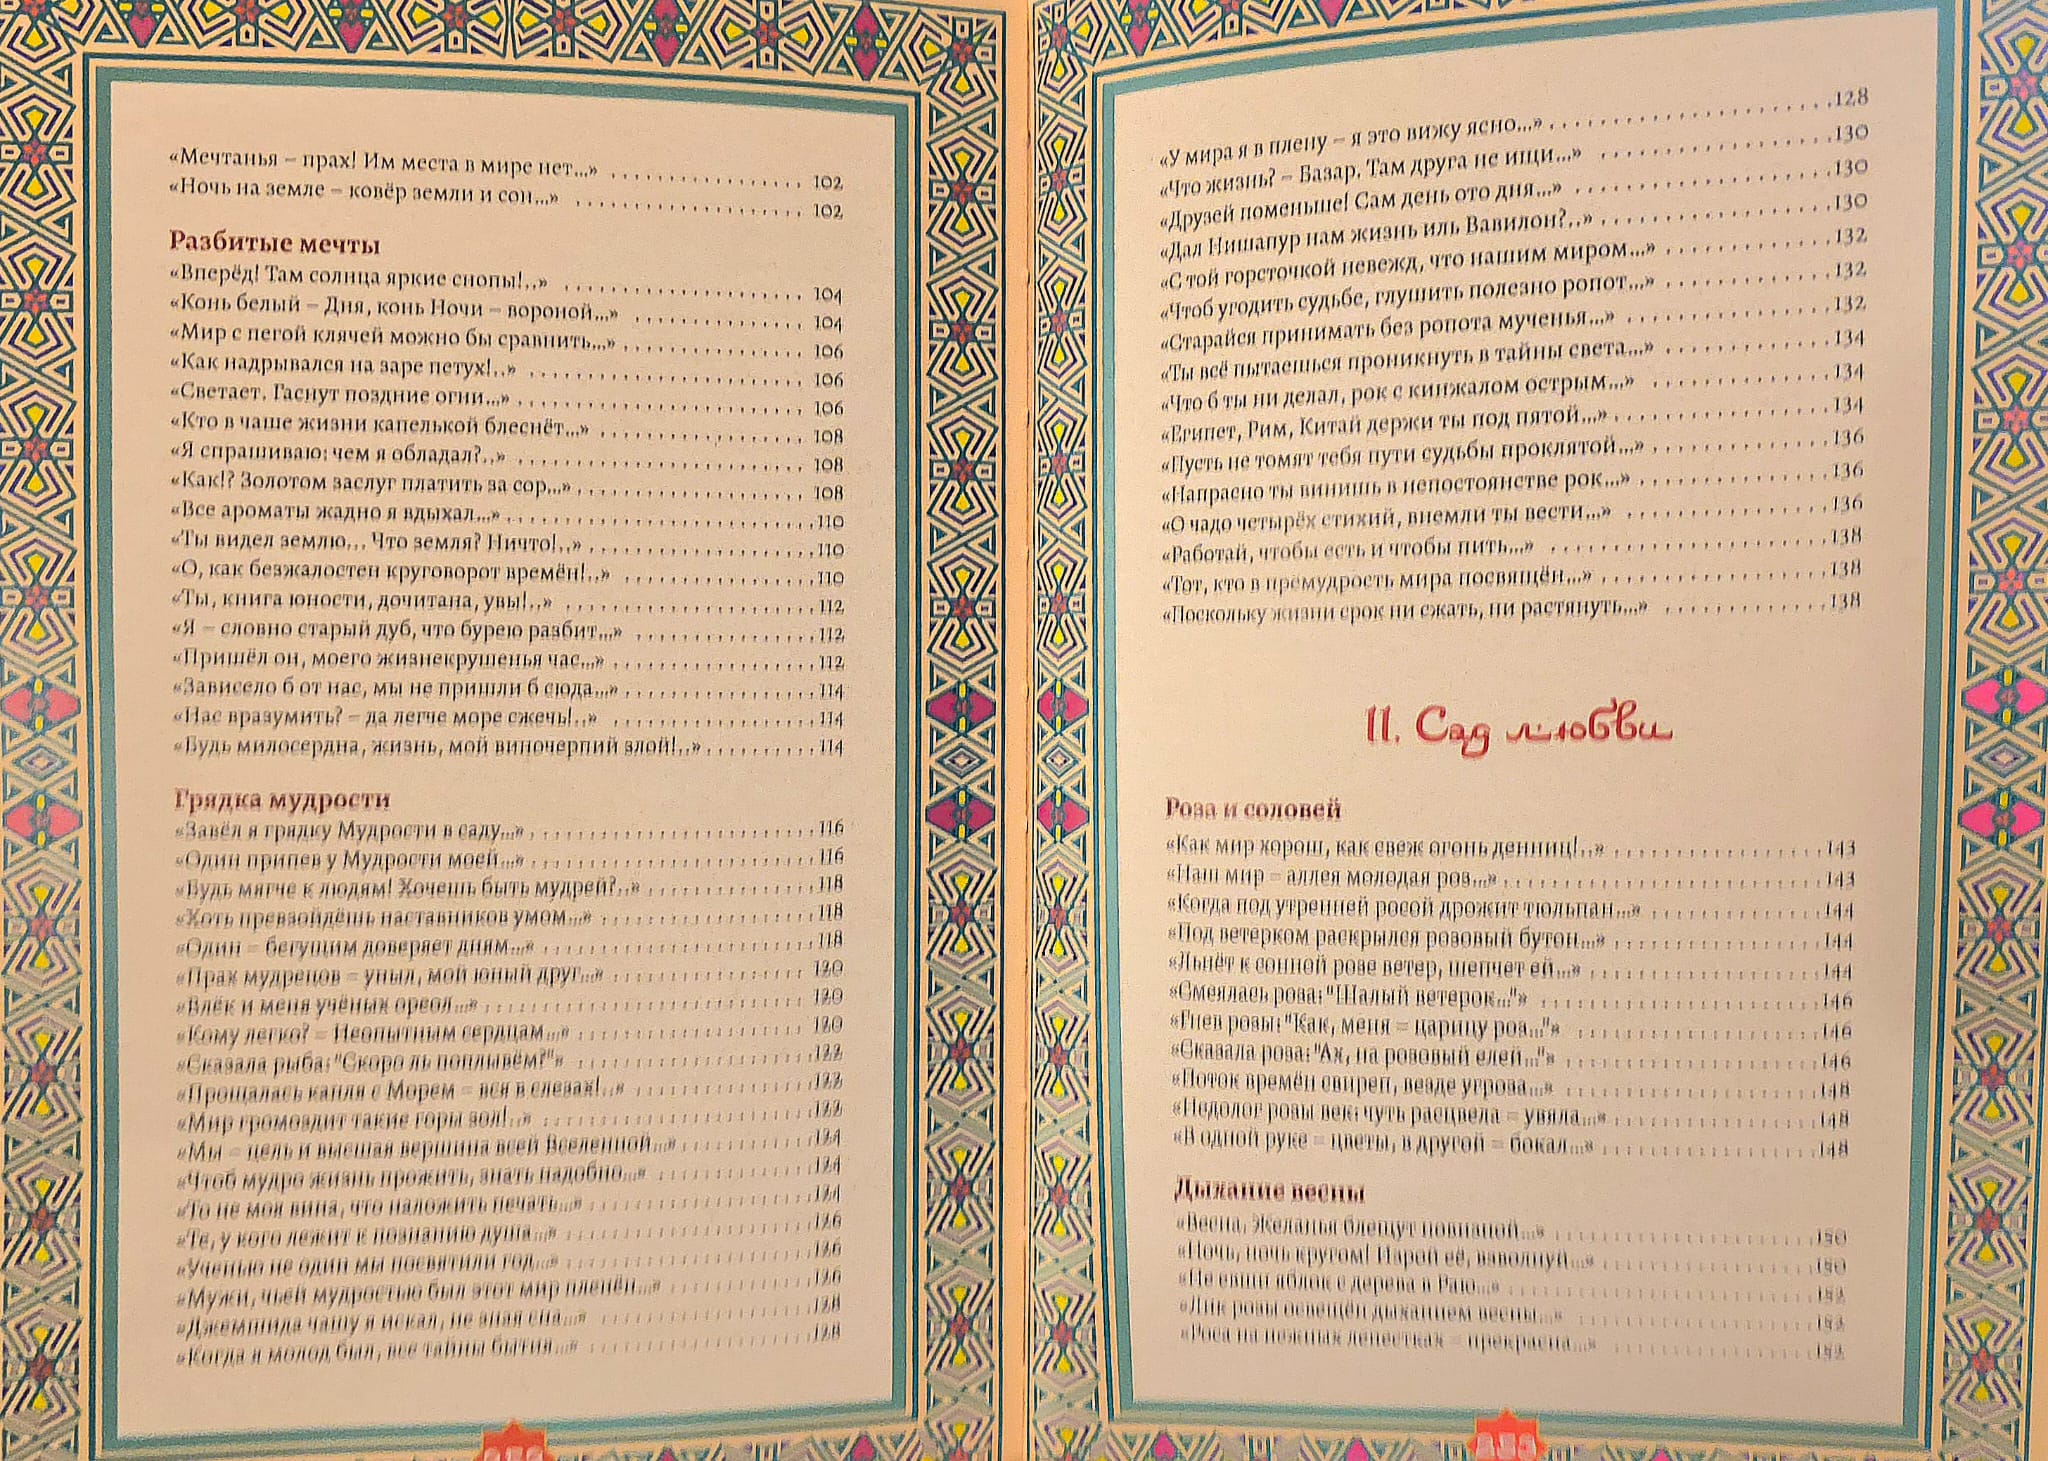 «Мечтанья – прах! Им места в мире нет...» 102
«Ночь на земле – ковёр земли и сон...» 102
Разбитые мечты
«Вперёд! Там солнца яркие снопы!..» 104
«Конь белый – Дня, конь Ночи – вороной...» 104
«Мир с пегой клячей можно бы сравнить...» 106
«Как надрывался на заре петух!..» 106
«Светает. Гаснут поздние огни...» 106
«Кто в чаше жизни капелькой блеснёт...» 108
«Я спрашиваю: чем я обладал?..» 108
«Как!? Золотом заслуг платить за сор...» 108
«Все ароматы жадно я вдыхал...» 110
«Ты видел землю... Что земля? Ничто!..» 110
«О, как безжалостен круговорот времён!..» 110
«Ты, книга юности, дочитана, увы!..» 112
«Я – словно старый дуб, что бурею разбит...» 112
«Пришёл он, моего жизнекрушенья час...» 112
«Зависело б от нас, мы не пришли б сюда...» 114
«Нас вразумить? – да легче море сжечь!..» 114
«Будь милосердна, жизнь, мой виночерпий злой!..» 114
Грядка мудрости
«Завёл я грядку Мудрости в саду...» 116
«Один припев у Мудрости моей...» 116
«Будь мягче к людям! Хочешь быть мудрей?..» 118
«Хоть превзойдёшь наставников умом...» 118
«Один – бегущим доверяет дням...» 118
«Прах мудрецов – уныл, мой юный друг...» 120
«Влёк и меня учёных ореол...» 120
«Кому легко? – Неопытным сердцам...» 120
«Сказала рыба: "Скоро ль поплывём?"» 122
«Прощалась капля с Морем – вся в слезах!..» 122
«Мир громоздит такие горы зол!..» 122
«Мы – цель и высшая вершина всей Вселенной...» 124
«Чтоб мудро жизнь прожить, знать надобно...» 124
«То не моя вина, что наложить печать...» 124
«Те, у кого лежит к познанию душа...» 126
«Ученью не один мы посвятили год...» 126
«Мужи, чьей мудростью был этот мир пленён...» 126
«Джемшида чашу я искал, не зная сна...» 128
«Когда я молод был, все тайны бытия...» 128
«У мира я в плену – я это вижу ясно...» 128
«Что жизнь? – Базар. Там друга не ищи...» 130
«Друзей поменьше! Сам день ото дня...» 130
«Дал Нишапур нам жизнь иль Вавилон?..» 130
«С той горсточкой невежд, что нашим миром...» 132
«Чтоб угодить судьбе, глушить полезно ропот...» 132
«Старайся принимать без ропота мученья...» 132
«Ты всё пытаешься проникнуть в тайны света...» 134
«Что б ты ни делал, рок с кинжалом острым...» 134
«Египет, Рим, Китай держи ты под пятой...» 134
«Пусть не томят тебя пути судьбы проклятой...» 136
«Напрасно ты винишь в непостоянстве рок...» 136
«О чадо четырёх стихий, внемли ты вести...» 136
«Работай, чтобы есть и чтобы пить...» 138
«Тот, кто в премудрость мира посвящён...» 138
«Поскольку жизни срок ни сжать, ни растянуть...» 138
II. Сад любви
Роза и соловей
«Как мир хорош, как свеж огонь денниц!..» 143
«Наш мир – аллея молодая роз...» 143
«Когда под утренней росой дрожит тюльпан...» 144
«Под ветерком раскрылся розовый бутон...» 144
«Льнёт к сонной розе ветер, шепчет ей...» 144
«Смеялась роза: "Шалый ветерок..."» 146
«Гнев розы: "Как, меня – царицу роз..."» 146
«Сказала роза: "Ах, на розовый елей..."» 146
«Поток времён свиреп, везде угроза...» 148
«Недолог розы век: чуть расцвела – увяла...» 148
«В одной руке – цветы, в другой – бокал...» 148
Дыхание весны
«Весна. Желанья блещут новизной...» 150
«Ночь, ночь кругом! Изрой её, взволнуй...» 150
«Не ешь яблок с дерева в Раю...» 152
«Лик розы освещён дыханием весны...» 152
«Роса на нежных лепестках – прекрасна...» 152